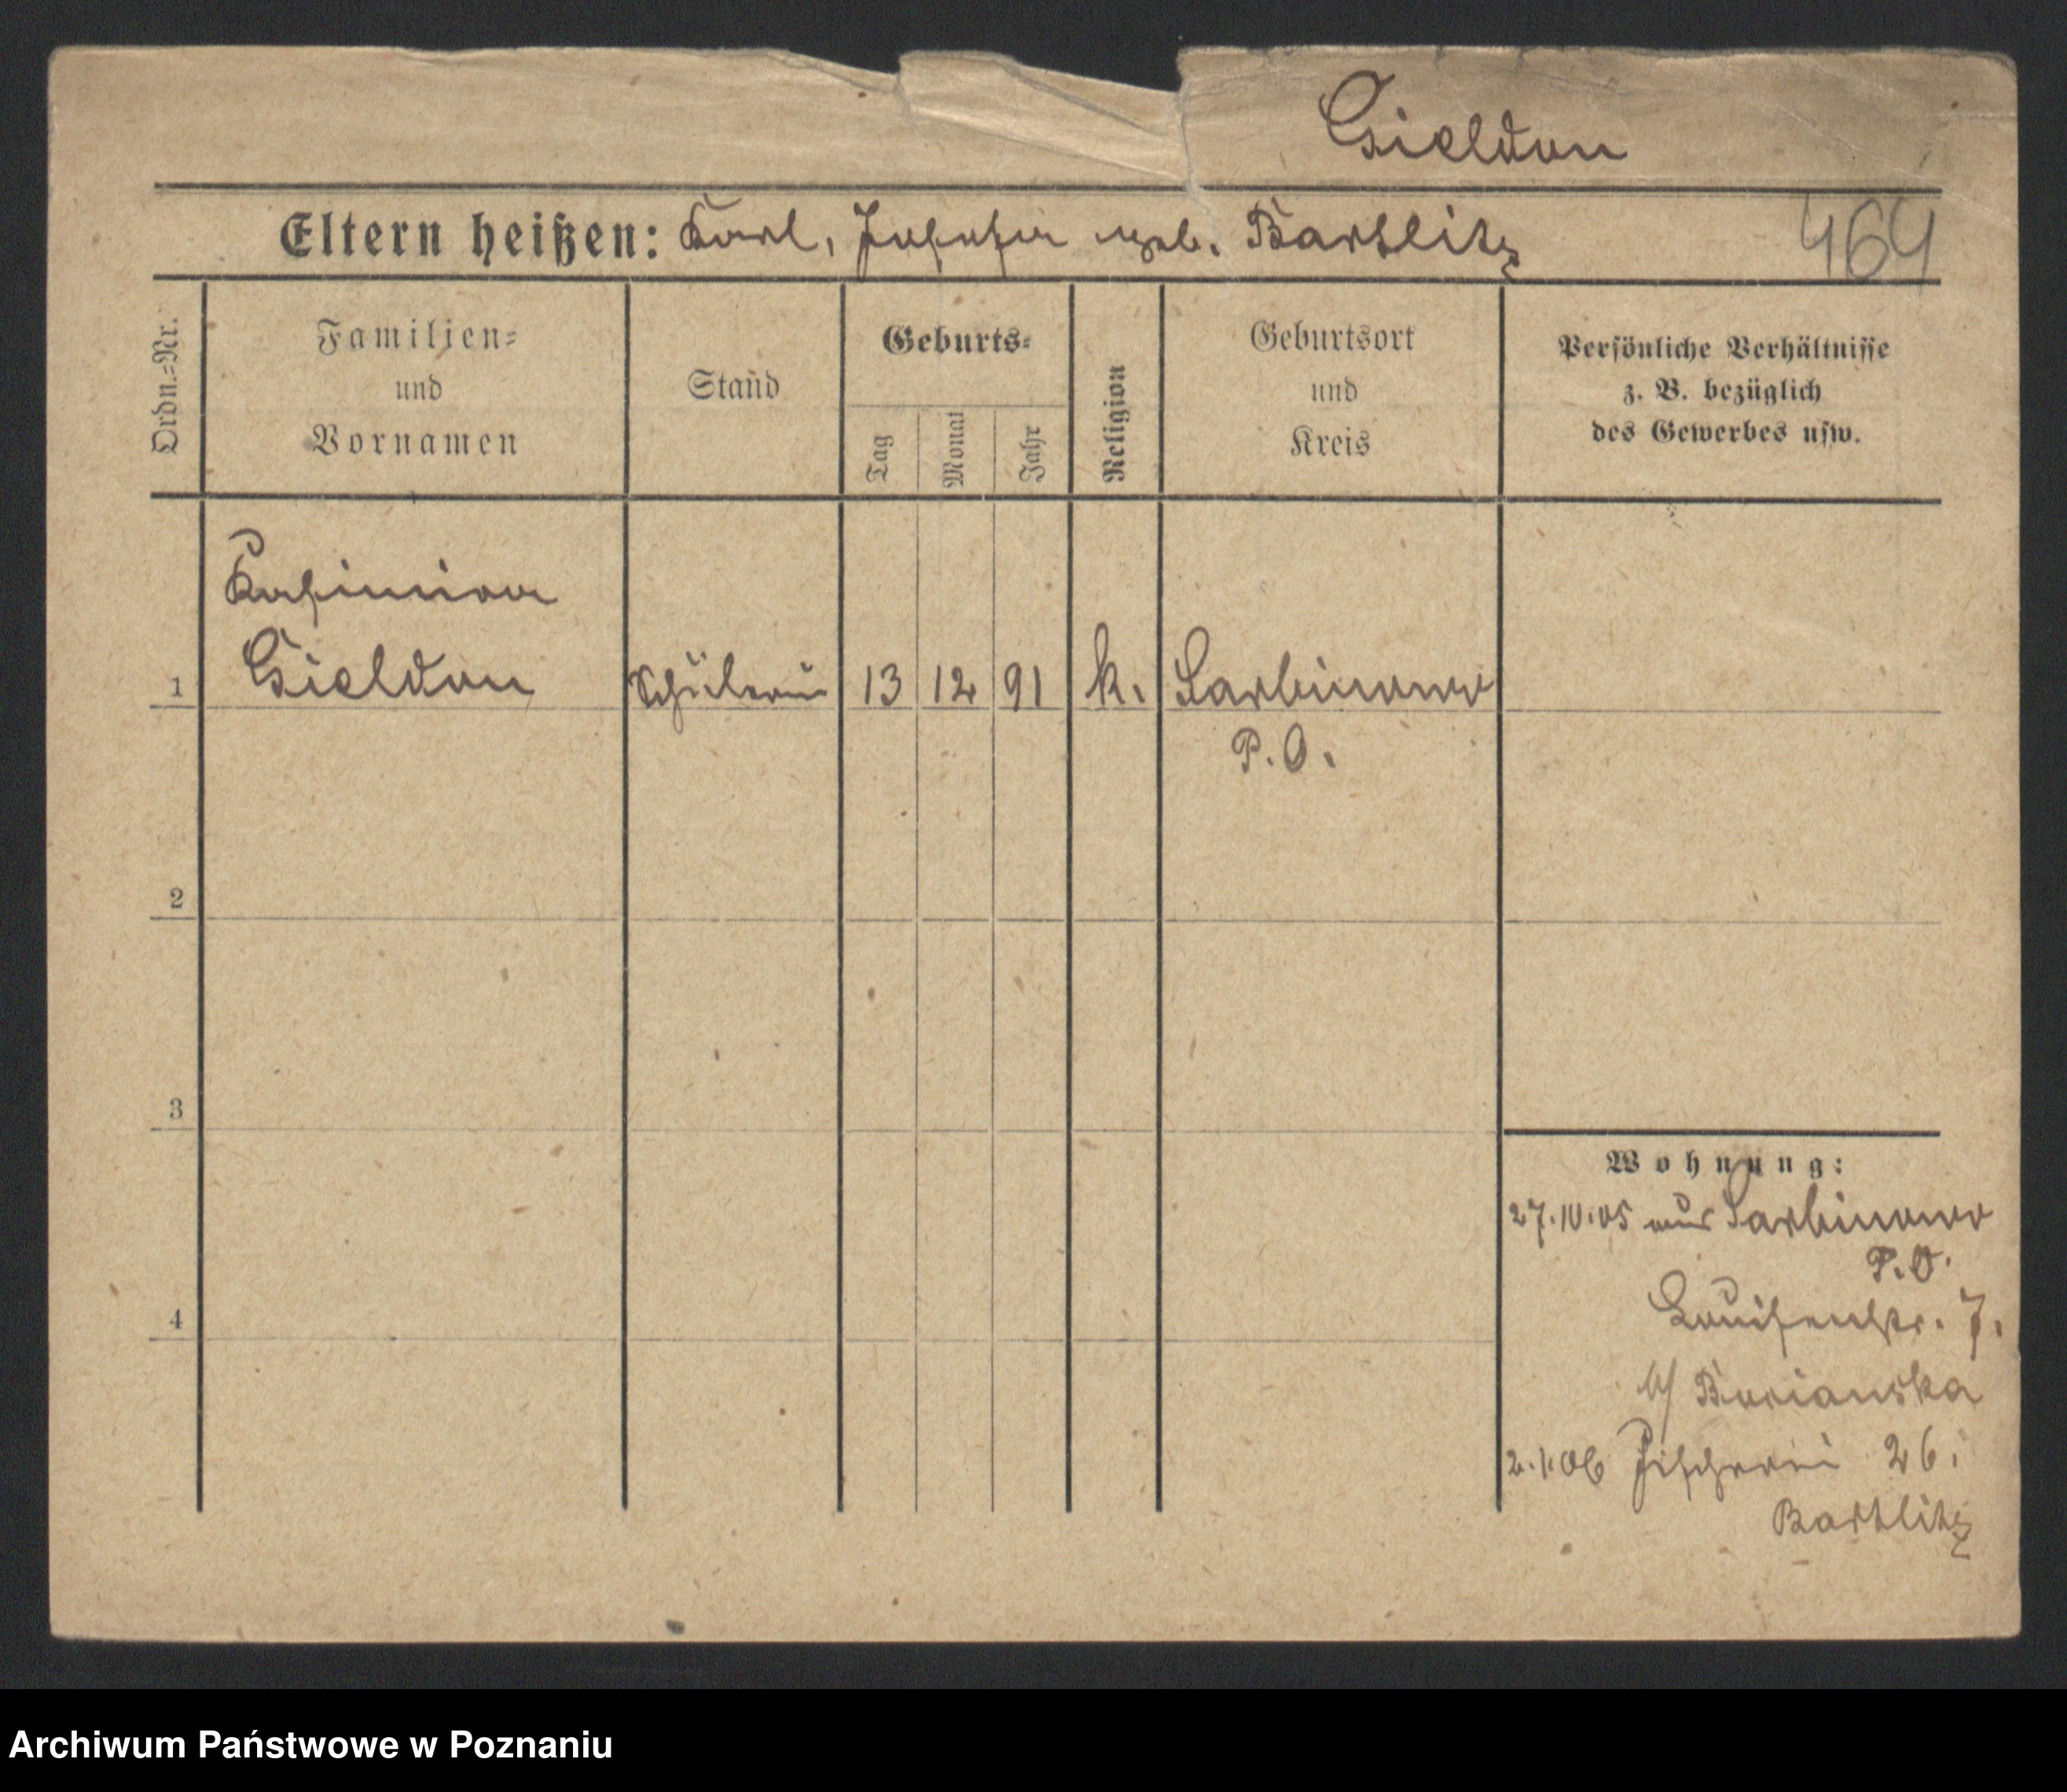 Gieldon
Eltern heißen: Karl, Josefa geb. Bartlitz
464
Ordn.-Nr.
Familien-
und
Vornamen
Stand
Geburts-
Tag
Monat
Jahr
Religion
Geburtsort
und
Kreis
Persönliche Verhältnisse
z. B. bezüglich
des Gewerbes usw.
Kasimira
1 Gieldon Schülerin 13 12 91 k. Sarbinowo
P. O.
2
3
4
Wohnung:
27.10.05 aus Sarbinowo
P. O.
Louisenstr. 7.
b/
2.1.06 Fischerei 26.
Bartlitz
Archiwum Państwowe w Poznaniu